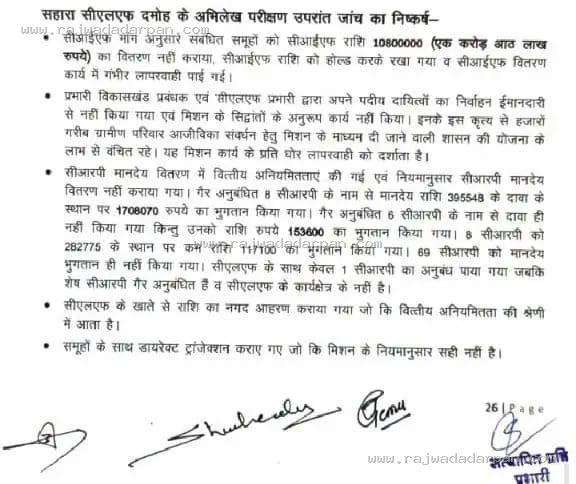 सहारा सीएलएफ दमोह के अभिलेख परीक्षण उपरांत जांच का निष्कर्ष–
www.rajwadadarpan.com
• सीआईएफ मांग अनुसार संबंधित समूहों को सीआईएफ राशि 10800000 (एक करोड़ आठ लाख
रुपये) का वितरण नहीं कराया, सीआईएफ राशि को होल्ड करके रखा गया व सीआईएफ वितरण
कार्य में गंभीर लापरवाही पाई गई।
• प्रभारी विकासखंड प्रबंधक एवं सीएलएफ प्रभारी द्वारा अपने पदीय दायित्वों का निर्वाहन ईमानदारी
से नहीं किया गया एवं मिशन के सिद्वांतों के अनुरूप कार्य नहीं किया। इनके इस कृत्य से हजारों
गरीब ग्रामीण परिवार आजीविका संवर्धन हेतु मिशन के माध्यम दी जाने वाली शासन की योजना के
लाभ से वंचित रहे। यह मिशन कार्य के प्रति घोर लापरवाही को दर्शाता है।
• सीआरपी मानदेय वितरण में वित्तीय अनियमितताएं की गई एवं नियमानुसार सीआरपी मानदेय
वितरण नहीं कराया गया। गैर अनुबंधित 8 सीआरपी के नाम से मानदेय राशि 395548 के दावा के
स्थान पर 1708070 रुपये का भुगतान किया गया। गैर अनुबंधित 6 सीआरपी के नाम से दावा ही
नहीं किया गया किन्तु उनको राशि रुपये 153600 का भुगतान किया गया। 8 सीआरपी को
282775 के स्थान पर कम राशि 117100 का भुगतान किया गया। 69 सीआरपी को मानदेय
www.rajwadadarpan.com
भुगतान ही नहीं किया गया। सीएलएफ के साथ केवल 1 सीआरपी का अनुबंध पाया गया जबकि
शेष सीआरपी गैर अनुबंधित हैं व सीएलएफ के कार्यक्षेत्र के नहीं है।
• सीएलएफ के खाते से राशि का नगद आहरण कराया गया जो कि वित्तीय अनियमितता की श्रेणी
में आता है।
• समूहों के साथ डायरेक्ट ट्रांजेक्शन कराए गए जो कि मिशन के नियमानुसार सही नहीं है।
26 | Page
www.rajwadadarpan.com
सत्यापित प्रति
प्रभारी